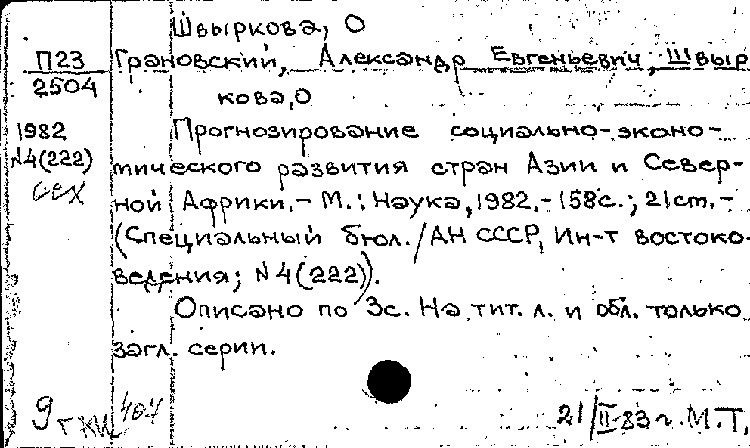 Швыркова, О
П23 Грановский, Александр Евгеньевич, Швыр
2504 кова, О
1982 Прогнозирование социально-эконо-
N4(222) мического развития стран Азии и Север-
сех ной Африки. - М.: Наука, 1982. - 158с.; 21см. -
(Специальный бюл. / АН СССР, Ин-т востоко-
ведения; N4(222)).
Описано по 3с. На тит. л. и обл. только
загл. серии.
9 404 21/II-83г. М.Т.